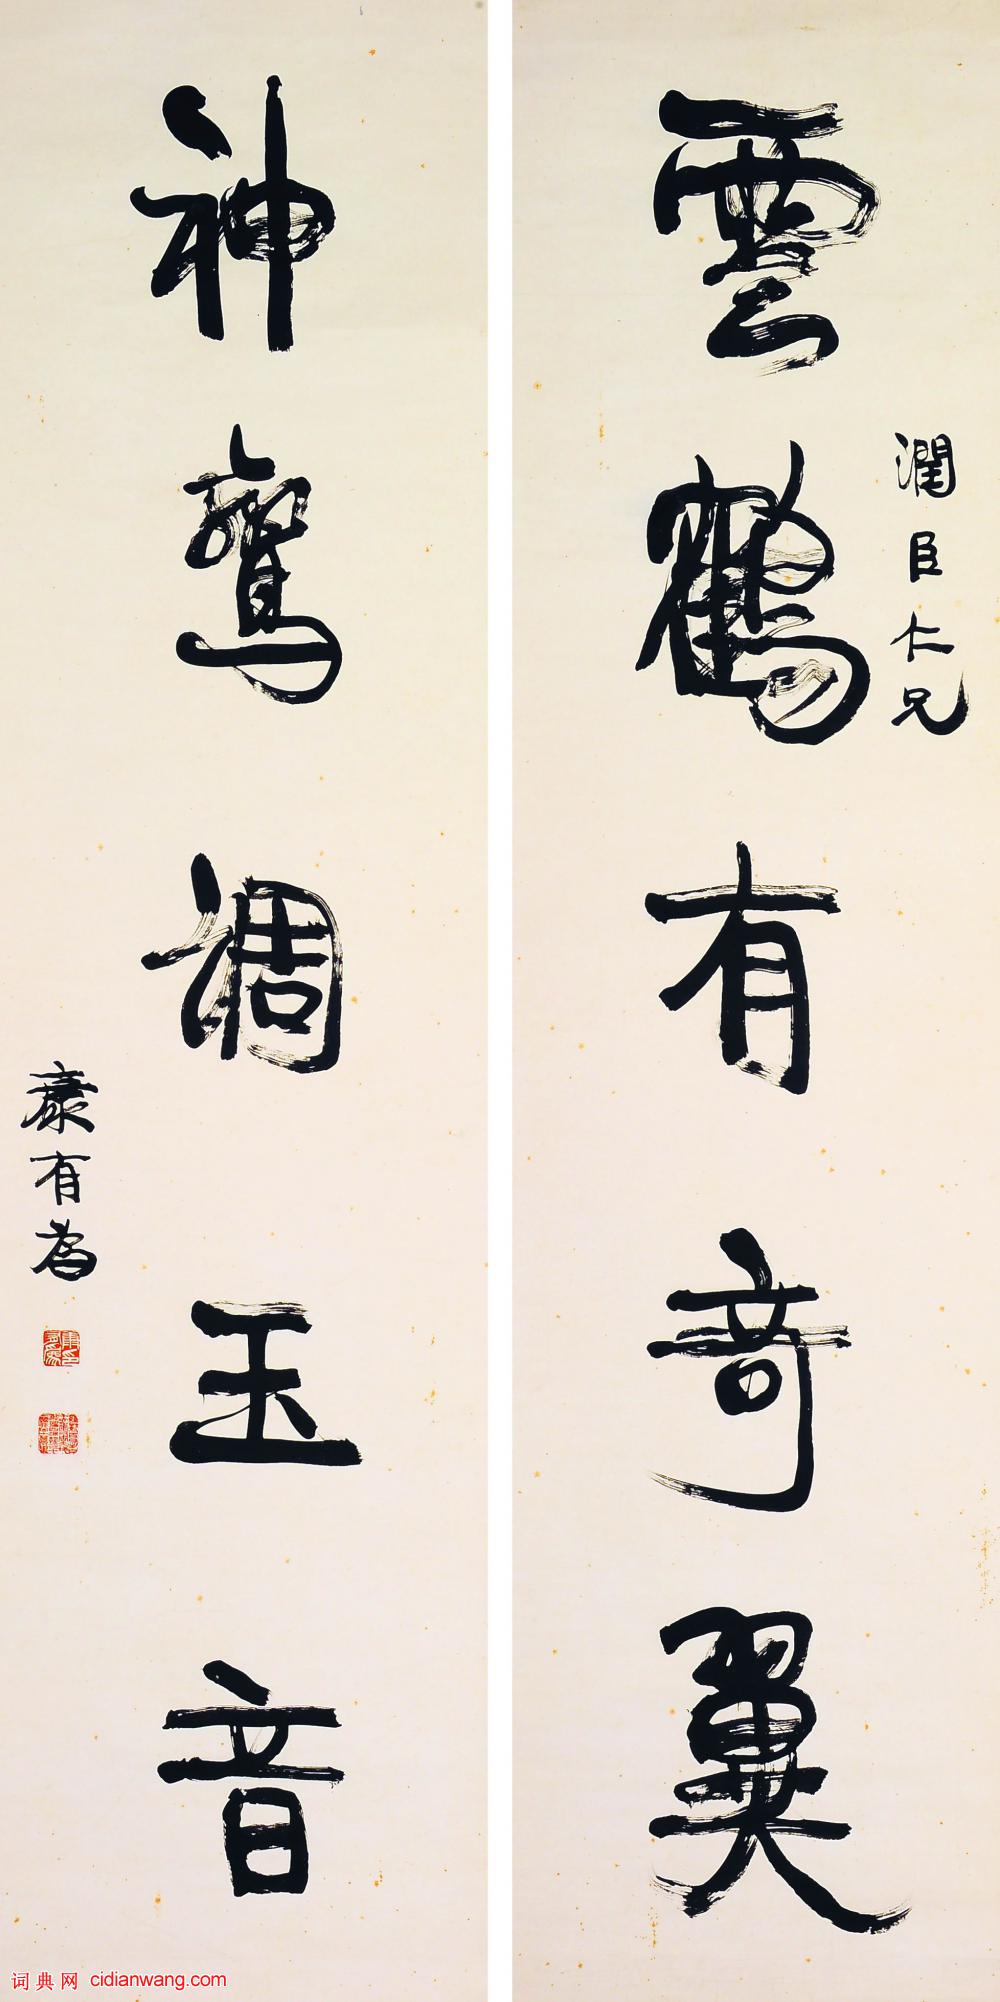 雲鶴有奇翼
潤臣仁兄
神鸞調玉音
康有為
词典网 cidianwang.com